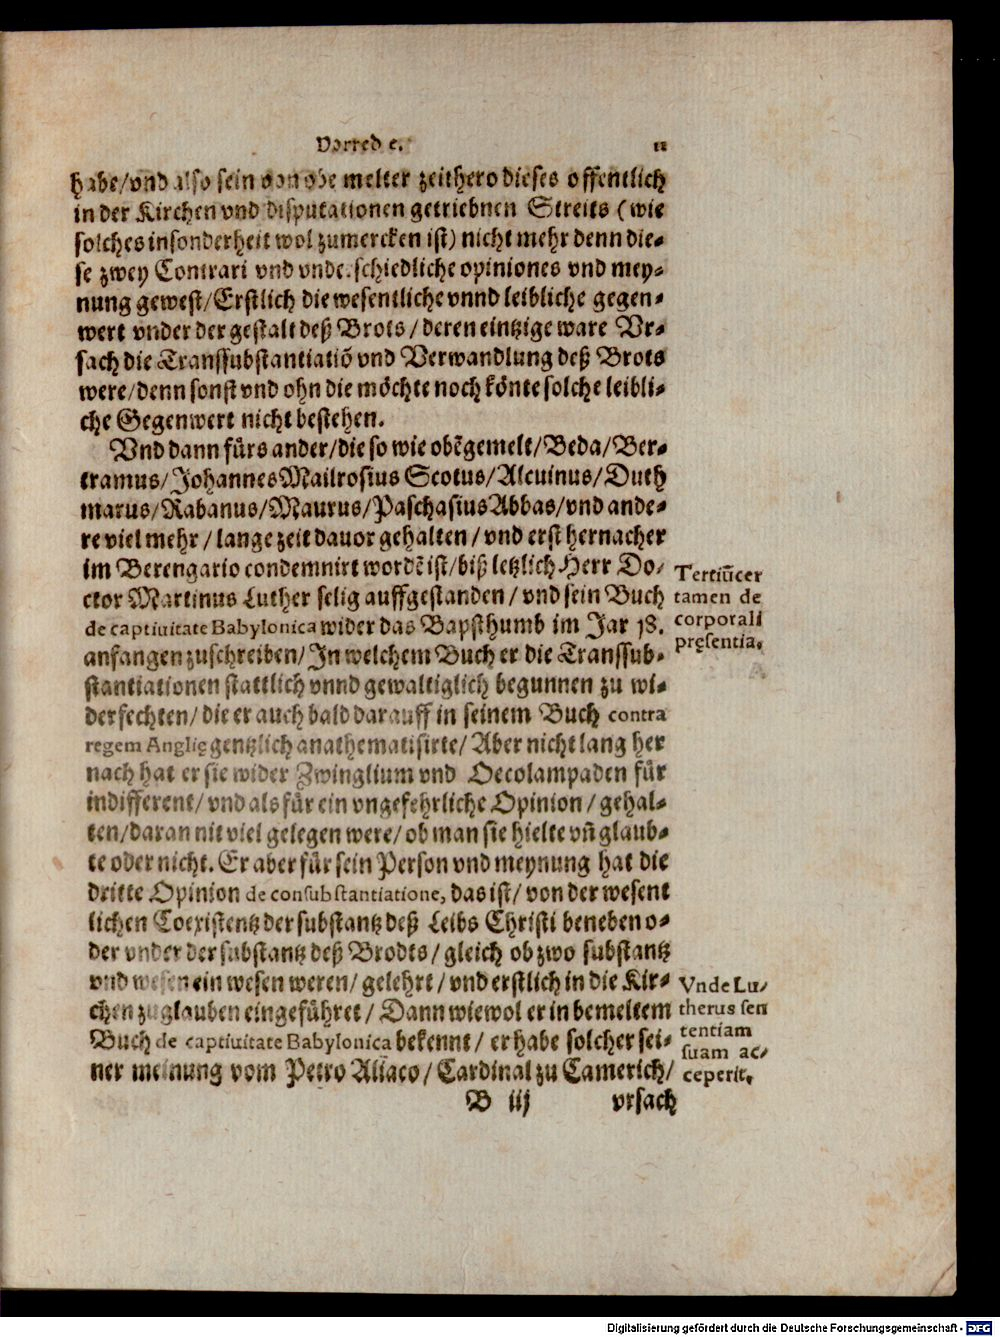 Vorrede.
habe/vnd also sein von obe melter zeithero dieses offentlich
in der Kirchen vnd disputationen getriebnen Streits (wie
solches insonderheit wol zumercken ist) nicht mehr denn die-
se zwey Contrari vnd vnderschiedliche opiniones vnd mey-
nung gewest/Erstlich die wesentliche vnnd leibliche gegen-
wert vnder der gestalt deß Brots/deren eintzige ware Vr-
sach die Transsubstantiatiō vnd Verwandlung deß Brots
were/denn sonst vnd ohn die möchte noch könte solche leibli-
che Gegenwert nicht bestehen.
Vnd dann fürs ander/die so wie obēgemelt/Beda/Ber-
tramus/Johannes Mailrosius Scotus/Alcuinus/Duth
marus/Rabanus/Maurus/Paschasius Abbas/vnd ande-
re viel mehr/lange zeit dauor gehalten/vnd erst hernacher
im Berengario condemnirt wordē ist/biß letzlich Herr Do-
ctor Martinus Luther selig auffgestanden/vnd sein Buch
de captiuitate Babylonica wider das Bapsthumb im Jar 18.
anfangen zuschreiben/In welchem Buch er die Transsub-
stantiationen stattlich vnnd gewaltiglich begunnen zu wi-
derfechten/die er auch bald darauff in seinem Buch contra
regem Anglię gentzlich anathematisirte/Aber nicht lang her
nach hat er sie wider Zwinglium vnd Oecolampaden für
indifferent/vnd als für ein vngefehrliche Opinion/gehal-
ten/daran nit viel gelegen were/ob man sie hielte vñ glaub-
te oder nicht. Er aber für sein Person vnd meynung hat die
dritte Opinion de consubstantiatione, das ist/von der wesent
lichen Coexistentz der substantz deß Leibs Christi beneben o-
der vnder der substantz deß Brodts/gleich ob zwo substantz
vnd wesen ein wesen weren/gelehrt/vnd erstlich in die Kir-
chen zu glauben eingeführet/Dann wiewol er in bemeltem
Buch de captiuitate Babylonica bekennt/er habe solcher sei-
ner meinung vom Petro Aliaco/Cardinal zu Camerich/
B iij vrsach
Tertiũcer
tamen de
corporali
pręsentia.
Vnde Lu-
therus sen
tentiam
suam ac-
ceperit.
Digitalisierung gefördert durch die Deutsche Forschungsgemeinschaft - DFG